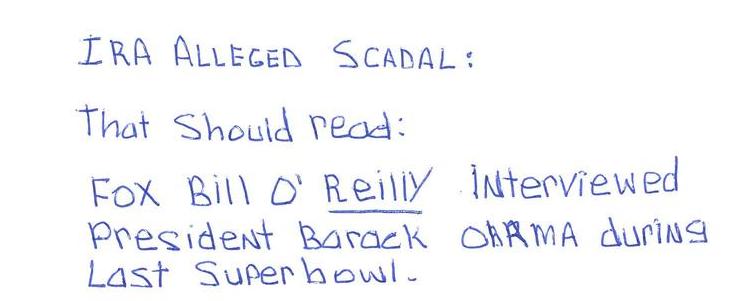 IRA ALLEGED SCADAL:
That Should read:
Fox Bill O' Reilly INterviewed
President Barack ObAMA duriNg
Last Superbowl.